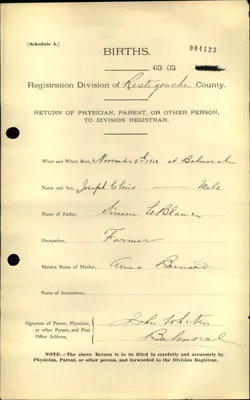 [Schedule A.]
BIRTHS.
004123
63 05
Registration Division of Restigouche County.
RETURN OF PHYSICIAN, PARENT, OR OTHER PERSON,
TO DIVISION REGISTRAR.
When and Where Born, November at Balmoral
Name and Sex, Joseph Clovis Male
Name of Father, Simeon LeBlanc
Occupation, Farmer
Maiden Name of Mother, Anna Bernard
Name of Accoucheur,
Signature of Parent, Physician,
or other Person, and Post
Office Address,
John
Balmoral
NOTE.—The above Return is to be filled in carefully and accurately by
Physician, Parent, or other person, and forwarded to the Division Registrar.